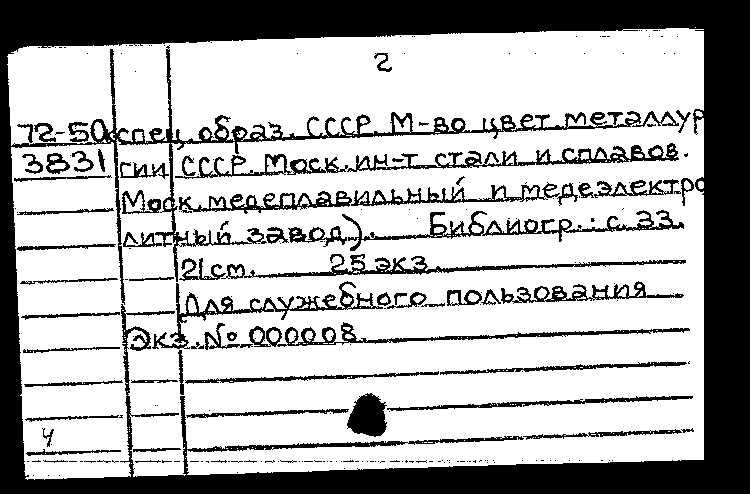 2
72-50к спец. образ. СССР. М-во цвет. металлур
3831 гии СССР. Моск. ин-т стали и сплавов.
Моск. медеплавильный и медеэлектро
литный завод). Библиогр.: с. 33.
21 см. 25 экз.
Для служебного пользования
Экз. № 000008.
4